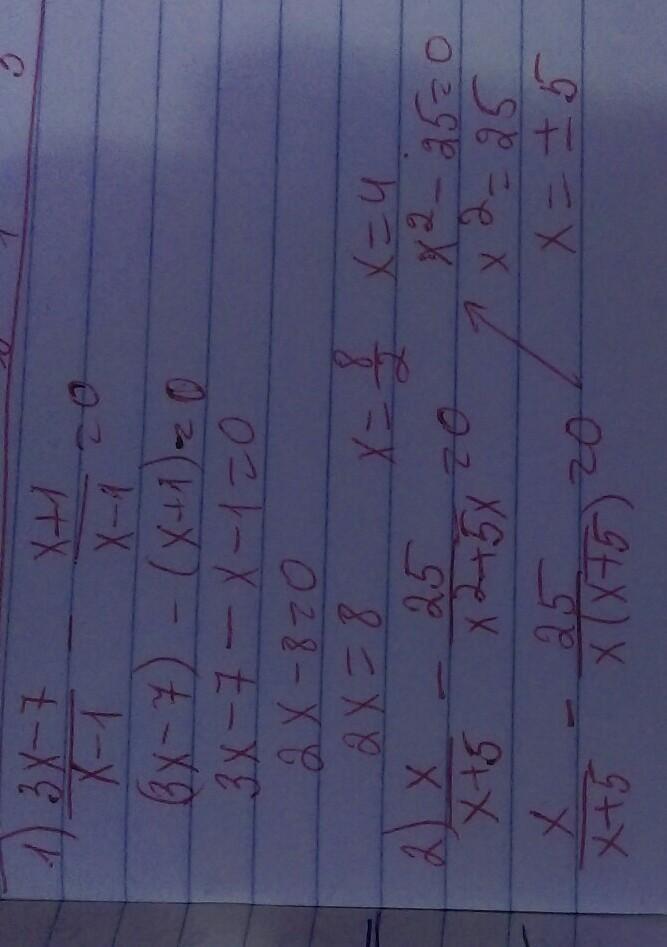 1) (3x-7)/(x-1) - (x+1)/(x-1) = 0
(3x-7) - (x+1) = 0
3x-7-x-1=0
2x-8=0
2x=8 x=8/2 x=4
2) x/(x+5) - 25/(x²+5x) = 0 x²-25=0
x²=25
x/(x+5) - 25/(x(x+5)) = 0 x=±5